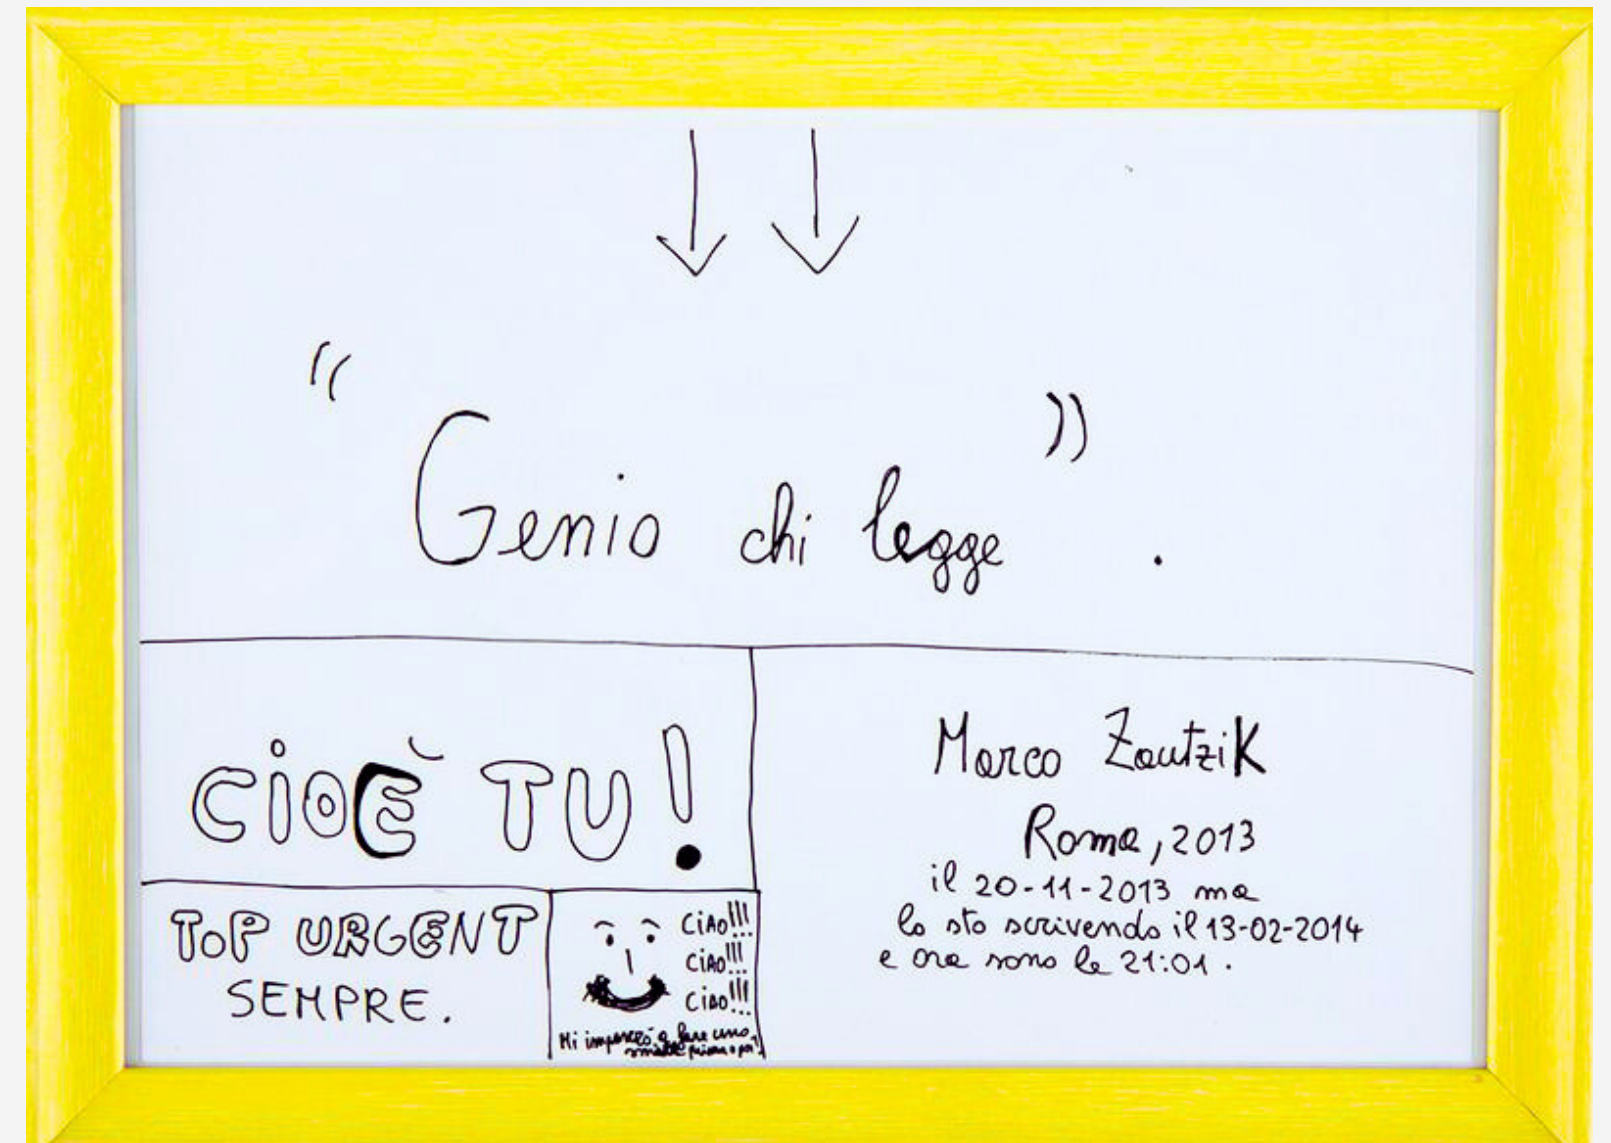 "Genio chi legge".
CIOÈ TU!
TOP URGENT
SEMPRE.
CIAO!!!
CIAO!!!
CIAO!!!
Mi imparerò a fare uno
smile prima o poi!
Marco Zautzik
Roma, 2013
il 20-11-2013 ma
lo sto scrivendo il 13-02-2014
e ora sono le 21:01.